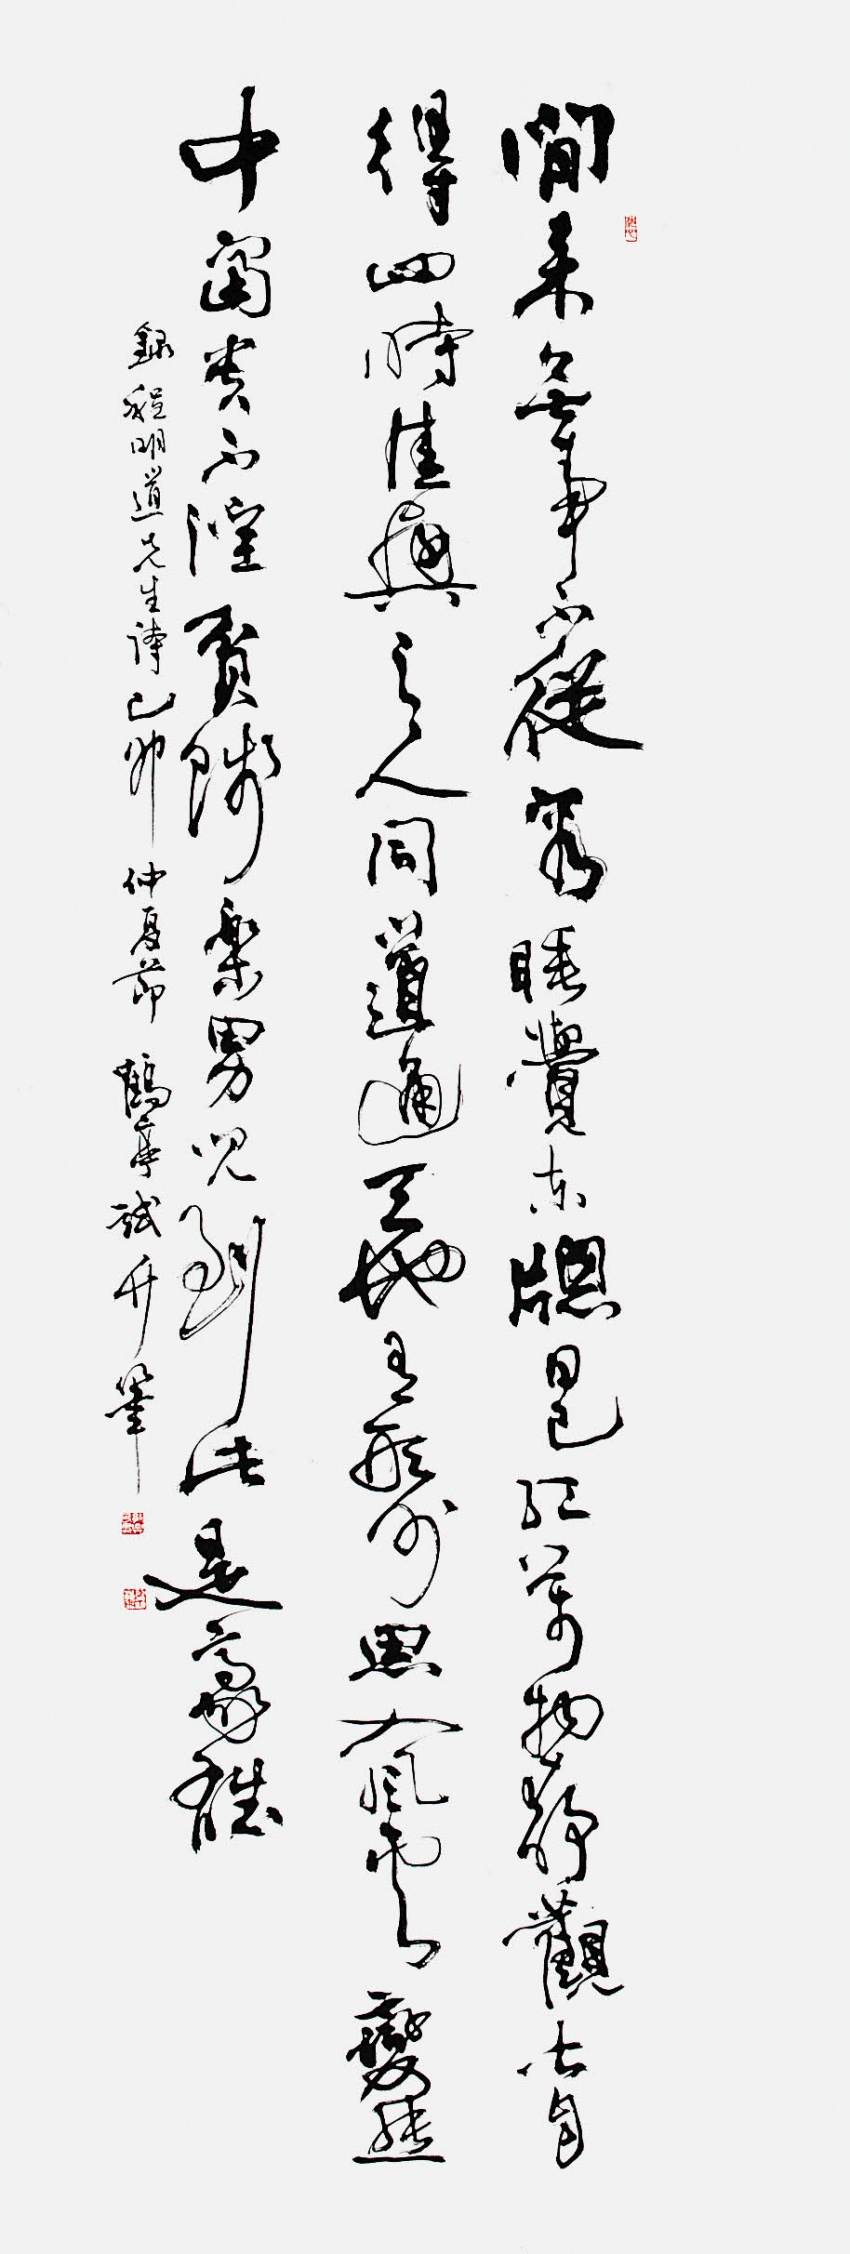 閒來無事不從容睡覺東牕日已紅萬物靜觀皆自
得四時佳興与人同道通天地有形外思入風雲變態
中富貴不淫貧賤樂男兒到此是豪雄
錄程明道先生詩己卯仲夏節鶴亭試筆